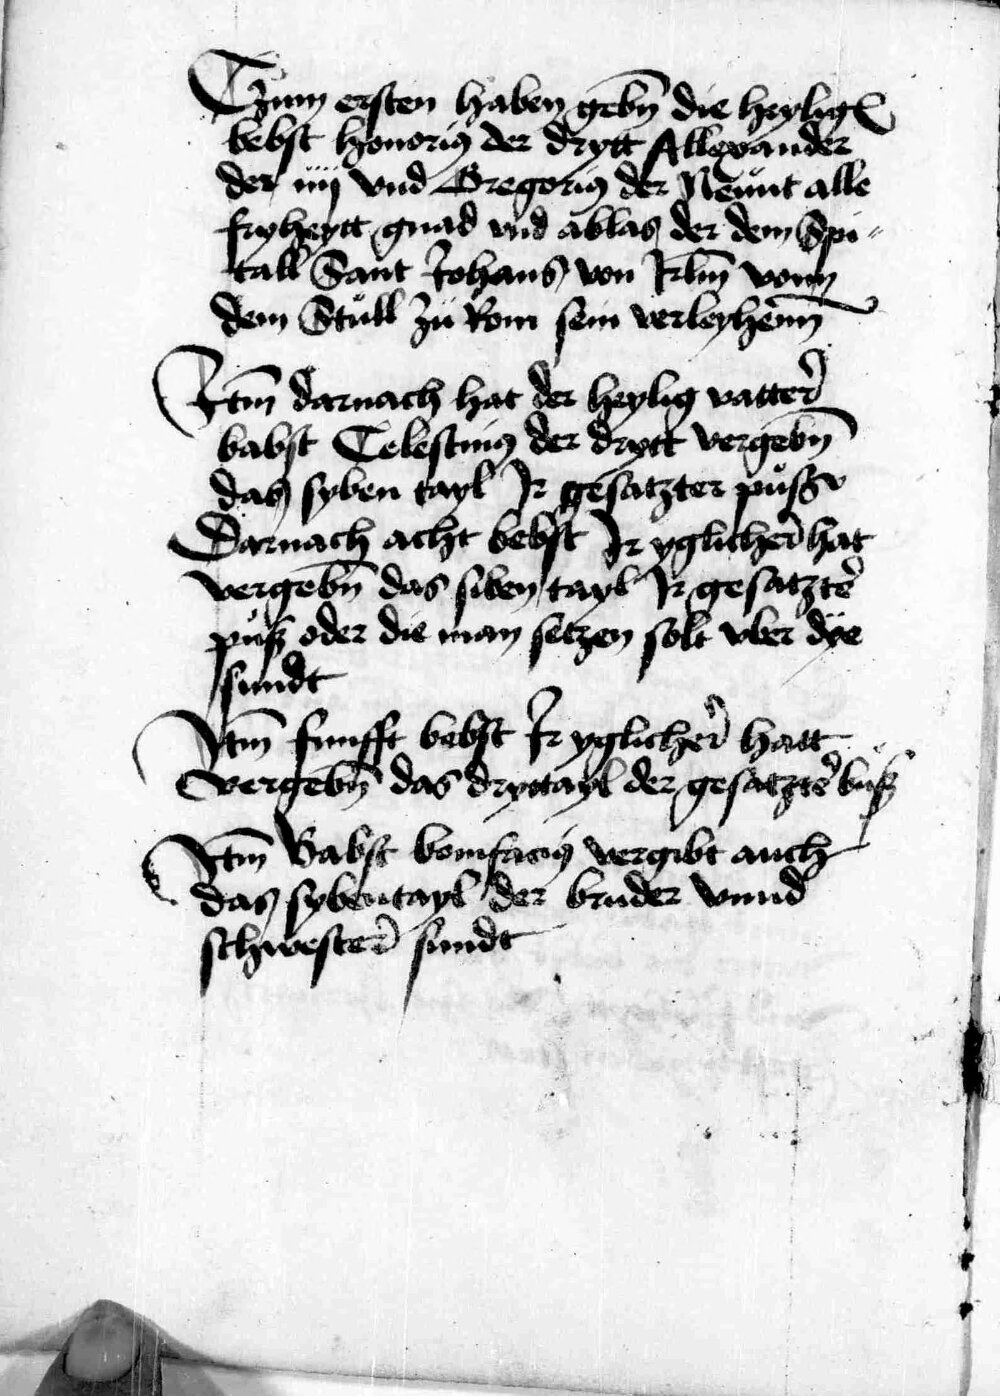 Czum ersten haben gebñ die heylig
bebst honorius der drytt Allexander
der iiij vnd Gregorius der Neŭnt alle
fryheytt gnad vnd ablas der dem Spi-
tall Sant Johans von Jrlm̃ vonn
dem Stŭll zŭ Rom sein verleyhenn̄
Jtm̃ darnach hat der heylig vatter
babst Celestinus der drytt vergebñ
das syben tayl Jr gesatzter pŭß
Darnach acht bebst Jr yglicher hat
vergebñ das siben tayl Jr gesatzte
pŭß oder die man setzen solt vber dÿe
sundt
Jtm̃ funfft bebst Jr yglicher hatt
vergebñ das dryttayl der gesatzte buß
Jtm̃ Babst bonifacius vergibt auch
das sybentayl der bruder vnnd
schwester sundt